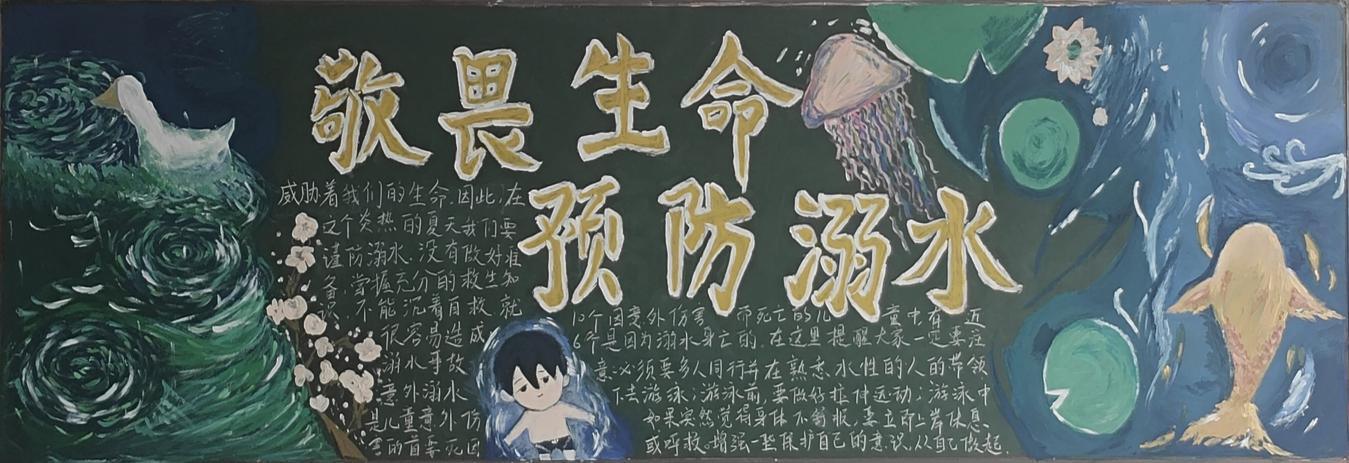 敬畏生命
预防溺水
威胁着我们的生命.因此,在
这个炎热的夏天我们要
谨防溺水.没有做好准
备,掌握充分的救生知
识 不能沉着自救 就
很容易造成
溺水事故
意外溺水
是儿童意外伤
害的首要死因
10个因意外伤害 而死亡的儿 童中有 近
6个是因为溺水身亡的.在这里提醒大家一定要注
意:必须要多人同行并在熟悉水性的人的带领
下去游泳;游泳前,要做好拉伸运动;游泳中
如果突然觉得身体不舒服,要立即上岸休息
或呼救.增强一些保护自己的意识,从自己做起.